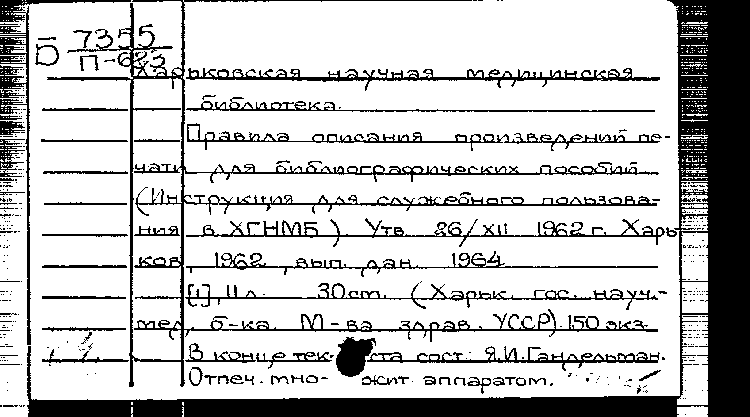 Б 7355
П-623
Харьковская научная медицинская
библиотека.
Правила описания произведений пе-
чати для библиографических пособий
(Инструкция для служебного пользова-
ния в ХГНМБ). Утв 26/XII 1962 г. Харь-
ков, 1962, вып. дан. 1964
[1], 11 л. 30 cm. (Харьк. гос. науч.-
мед. б-ка. М-ва здрав. УССР). 150 экз.
В конце тек- ста сост: Я.И.Гандельман.
Отпеч. мно- жит аппаратом.